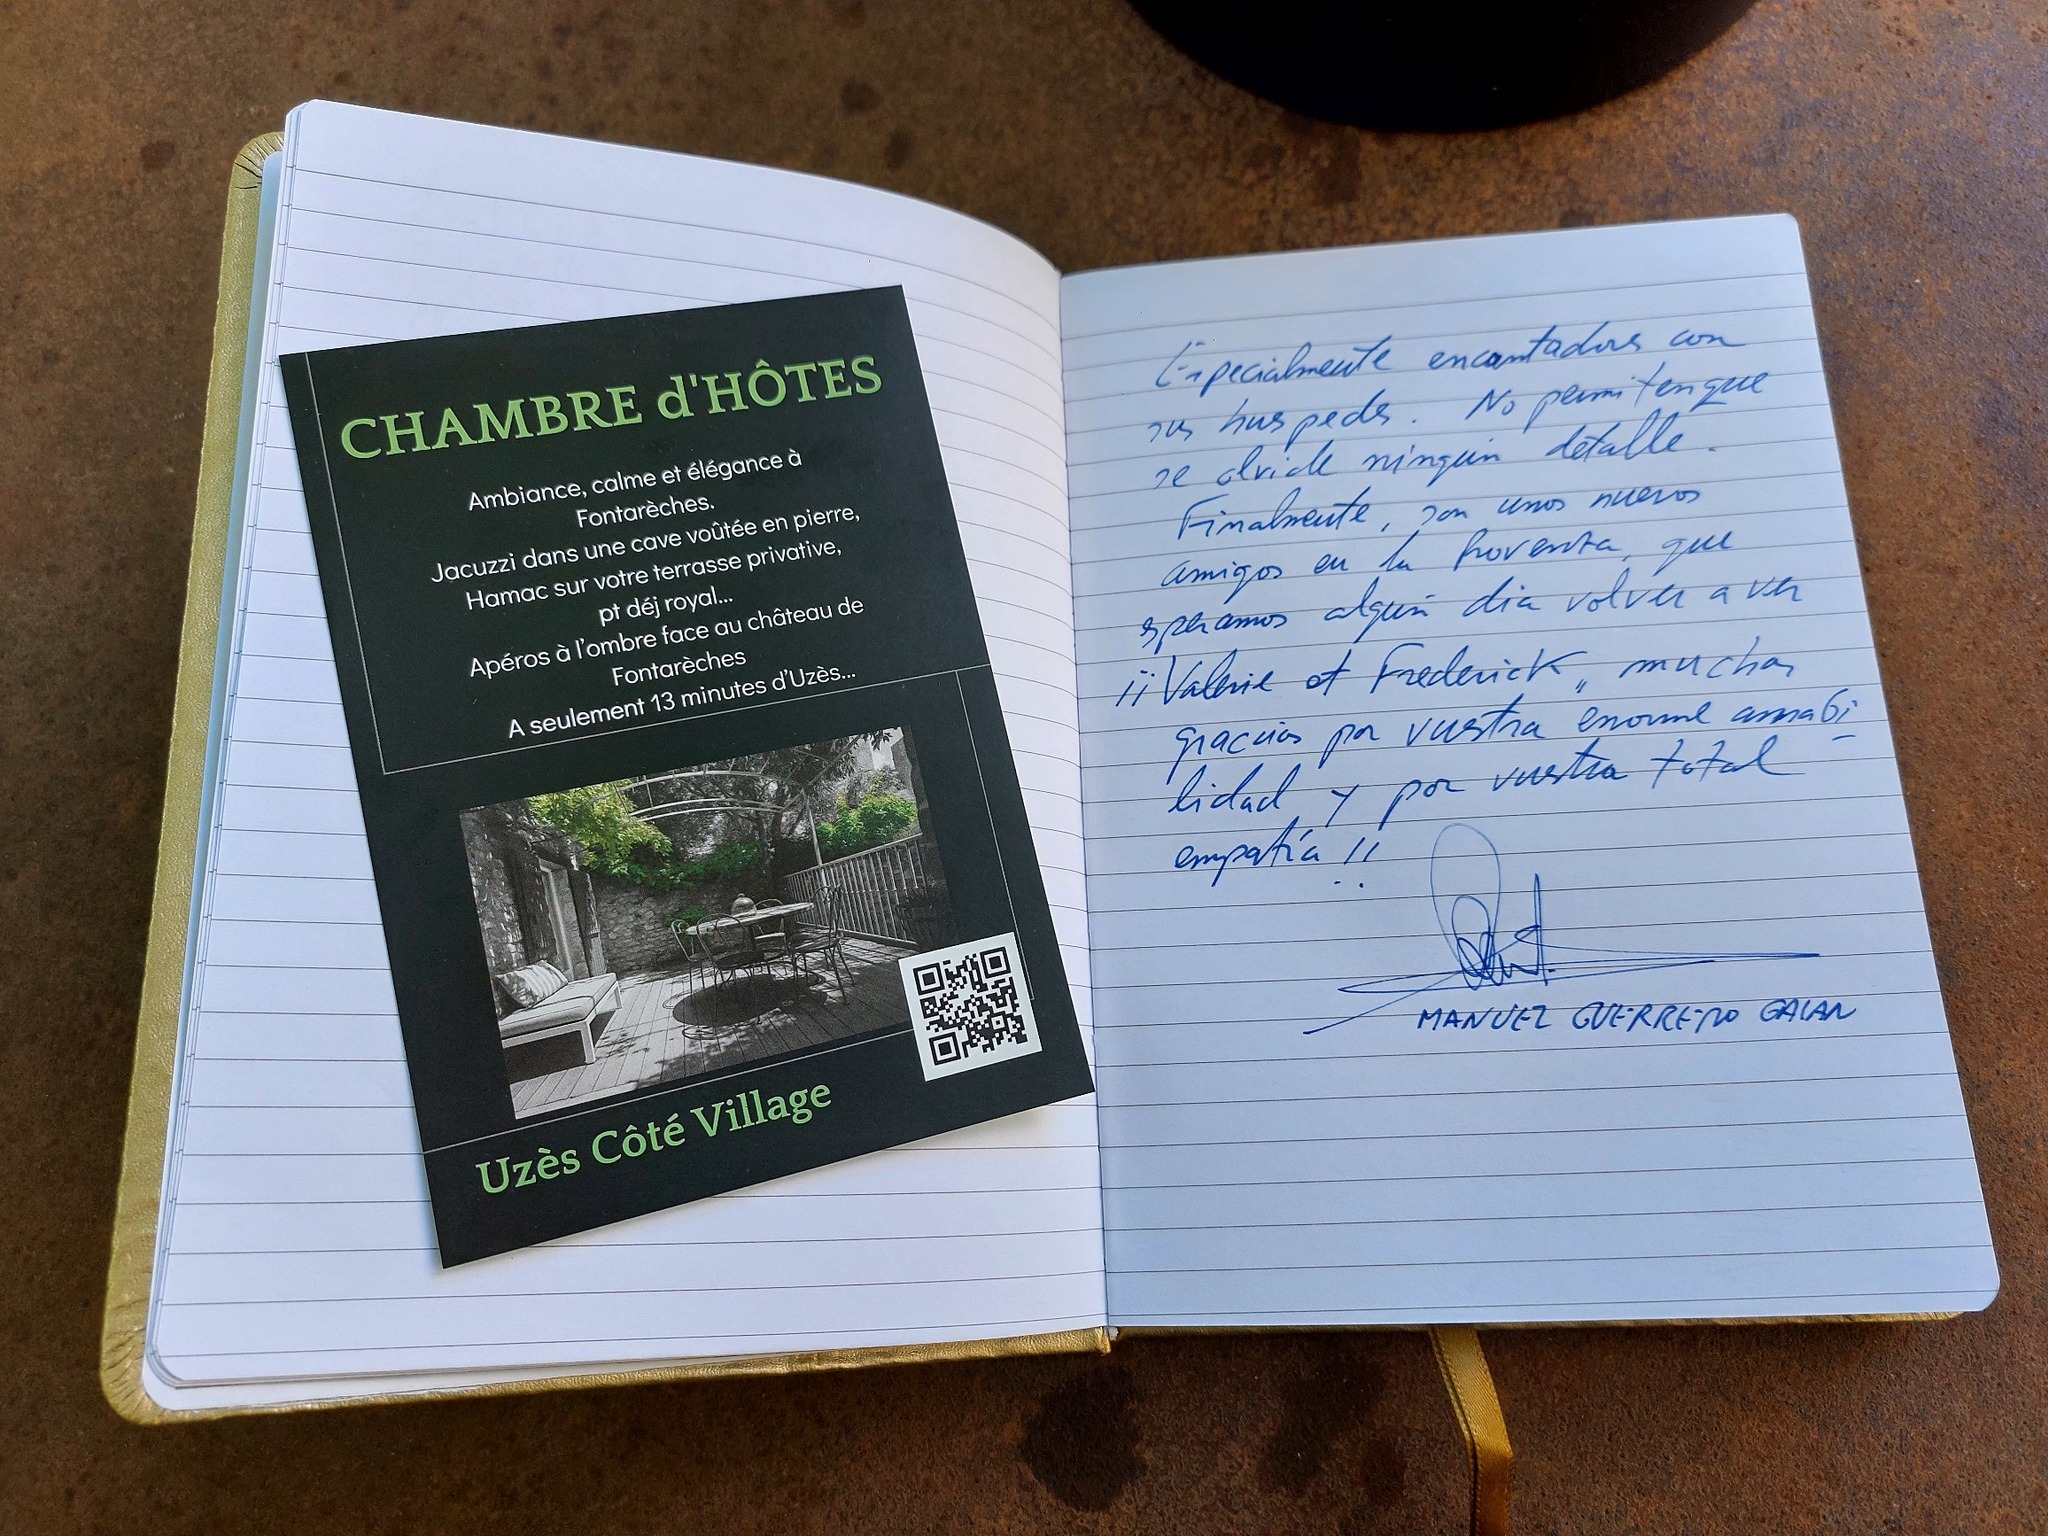 CHAMBRE d'HÔTES
Ambiance, calme et élégance à
Fontarèches.
Jacuzzi dans une cave voûtée en pierre,
Hamac sur votre terrasse privative,
pt déj royal...
Apéros à l'ombre face au château de
Fontarèches
A seulement 13 minutes d'Uzès...
Uzès Côté Village
Especialmente encantadores con
sus huspedes. No permiten que
se olvide ningún detalle.
Finalmente, son unos nuevos
amigos en la Provenza, que
esperamos algún dia volver a ver
¡¡Valerie et Frederick,, muchas
gracias por vuestra enorme amabi
lidad y por vuestra total
empatía!!
MANUEL GUERRERO GALAN